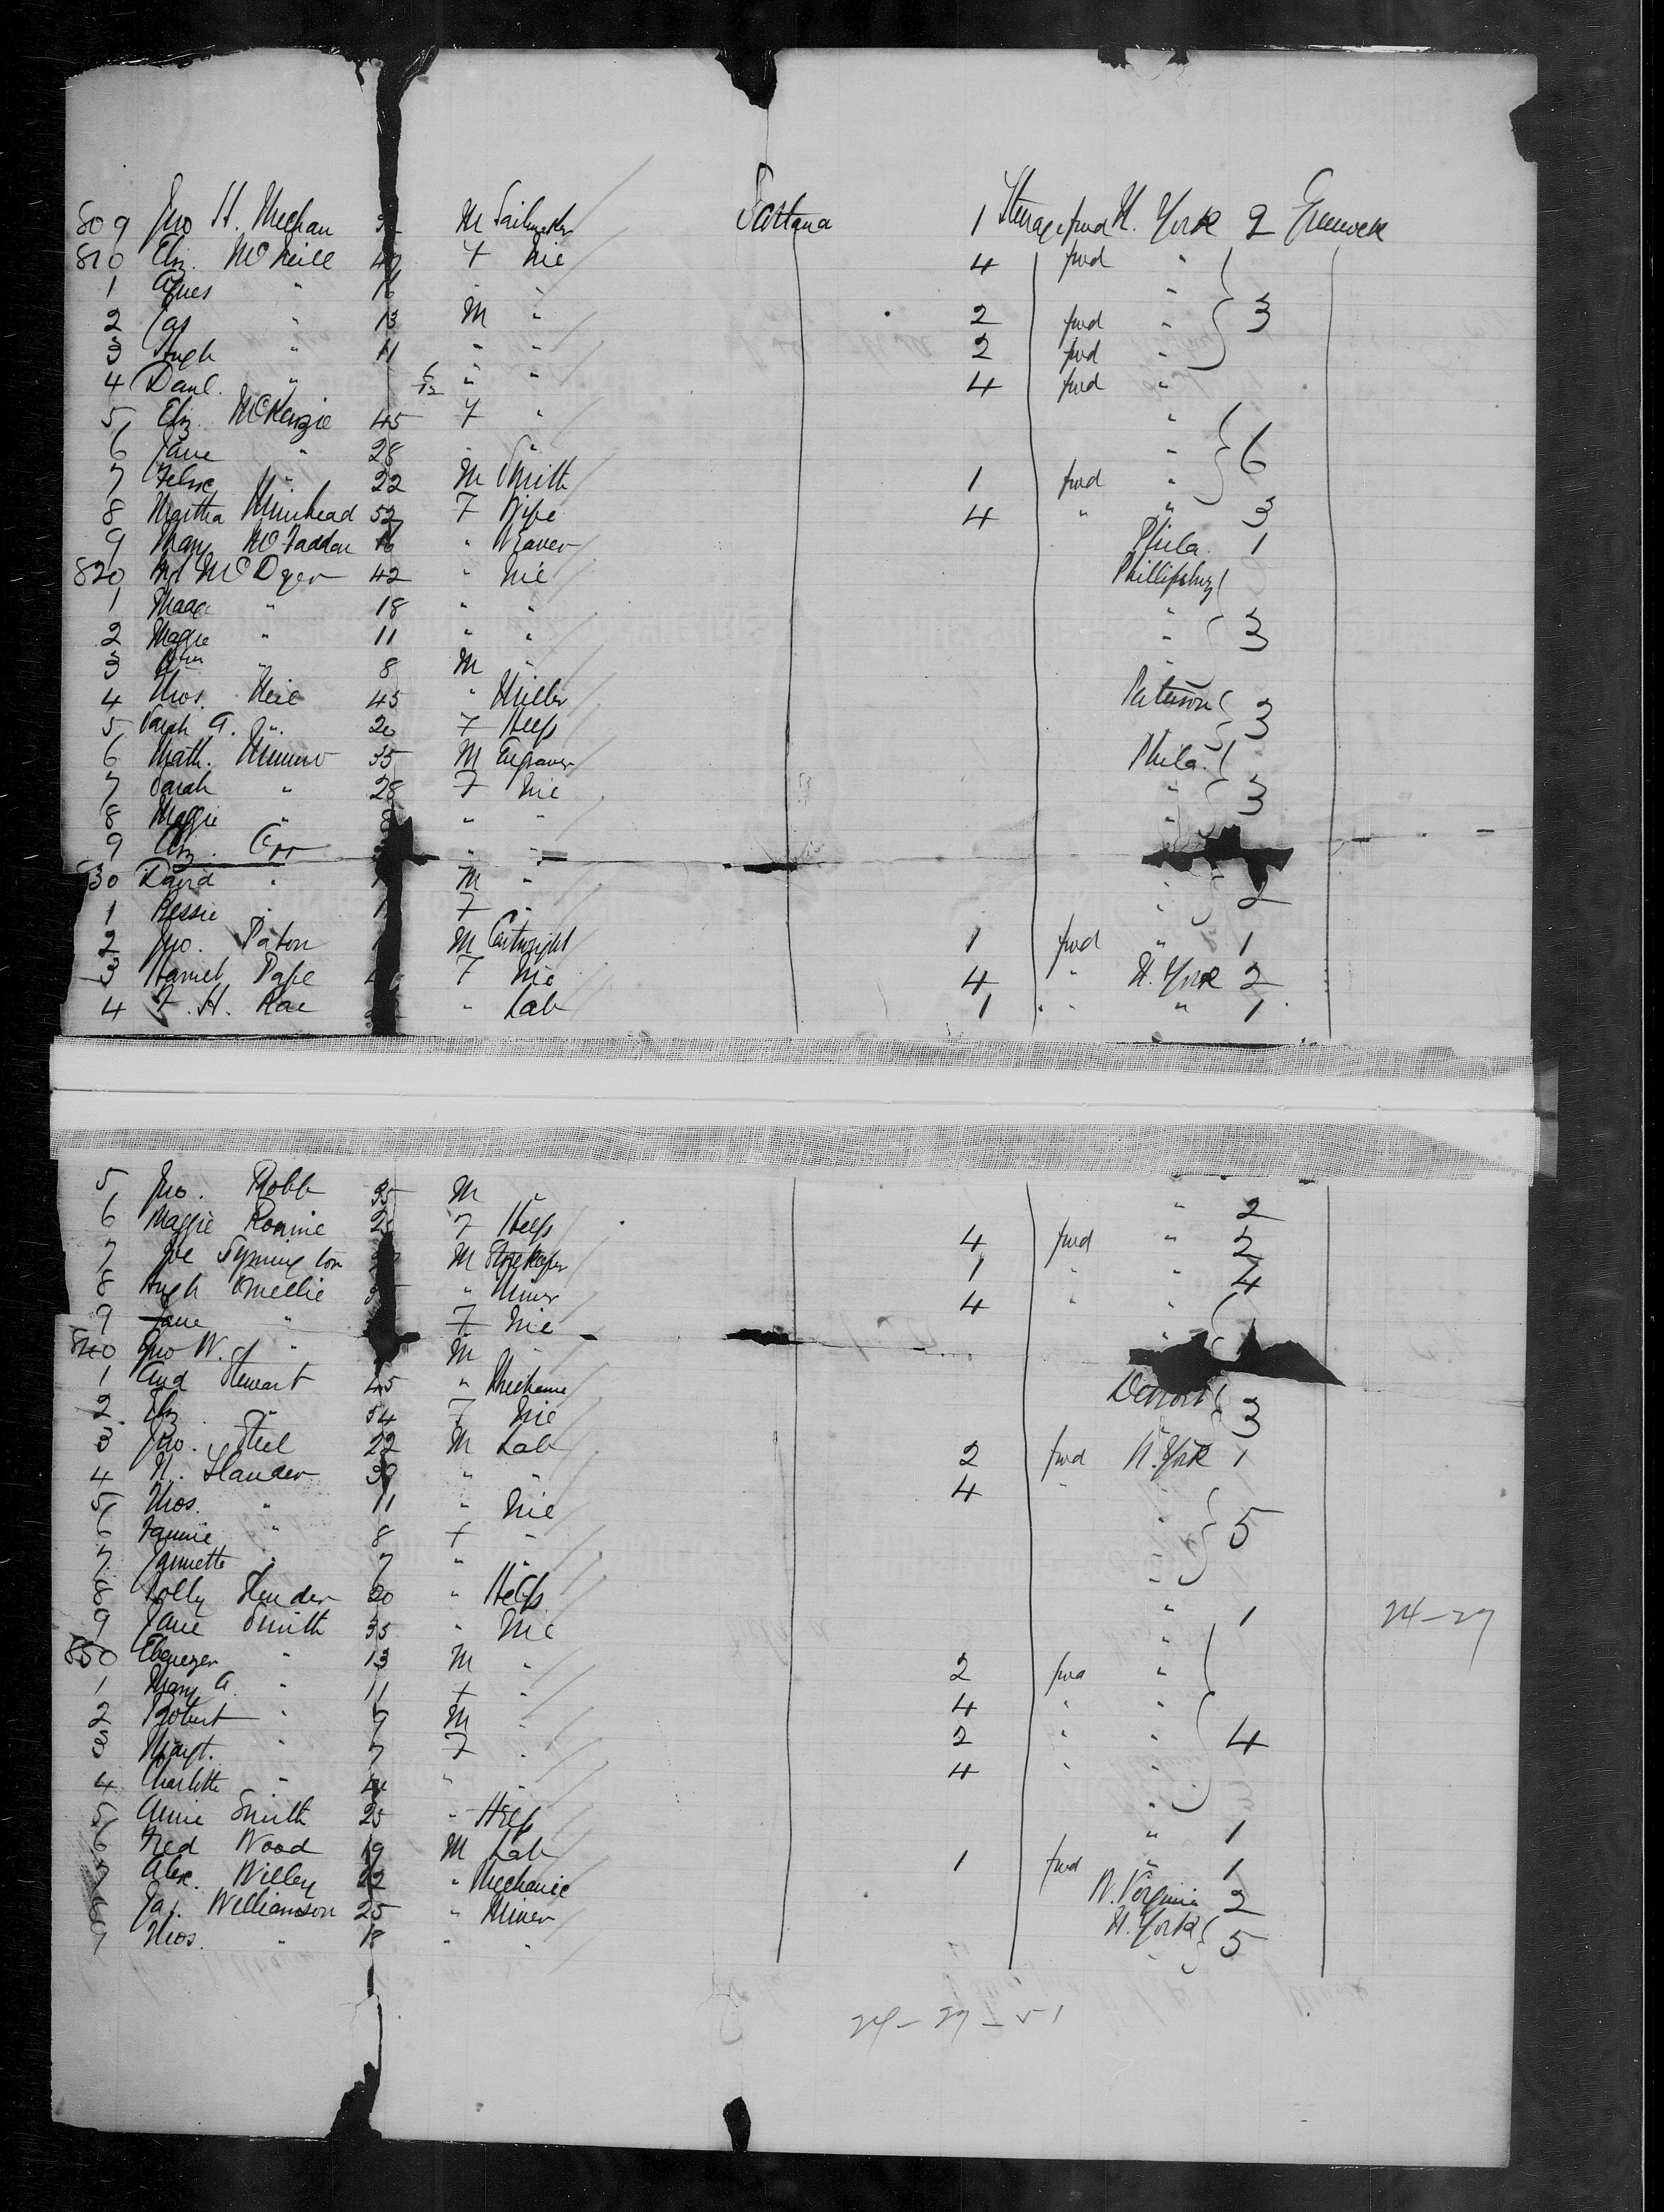 809 Jno H. Meehan M Sailmaker Scotland 1 Steerage fwd N. York 2 Greenock
810 Elz. McNeill 47 F Nie 4 fwd "
1 Agnes " 16 " "
2 Jas " 13 M " 2 fwd " 3
3 Hugh " 11 " " 2 fwd "
4 Danl. " 6/12 " " 4 fwd "
5 Elz. McKenzie 45 F " "
6 Jane " 28 " " " 6
7 " 22 M Smith 1 fwd "
8 Martha Muirhead 52 F Wife 4 " " 3
9 Mary McFadden 16 " Weaver Phila. 1
820 McDyer 42 " Nie Phillipsburg
1 " 18 " "
2 Maggie " 11 " " " 3
3 Wm " 8 M " "
4 Thos. Neil 45 " Miller Paterson 3
5 Sarah A. " 20 F Help
6 Math. Munro 35 M Engraver Phila.
7 Sarah " 28 F Nie " 3
8 Maggie " " " "
9 Elz. Orr " "
30 David " M " " 2
1 Bessie " F " "
2 Jno. Paton M Cartwright 1 fwd " 1
3 Harriet Pape F Nie 4 " N. York 2
4 H. Rae " Lab 1 " " " 1
5 Jno. Robb 35 M " " 2
6 Maggie Rennie F Help 4 fwd " 2
7 Joe Symington M Storekeeper 1 " " 4
8 Hugh Smellie " Miner 4 " "
9 Jane " F Nie "
840 Jno W. " M "
1 And Stewart 45 " Mechanic Detroit 3
2 Elz " 54 F Nie "
3 Jno. Steel 22 M Lab 2 fwd N. York 1
4 N. Slander 39 " " 4 " "
5 Thos. " 11 " Nie " 5
6 Fannie " 8 F " "
7 Jannette " 7 " " "
8 Polly 20 " Help " 1 24-27
9 Jane Smith 35 " Nie "
850 Ebenezer " 13 M " 2 fwd "
1 Mary A. " 11 F " 4 " "
2 Robert " 9 M " 2 " " 4
3 Margt. " 7 F " 4 " "
4 Charlotte " 4 " " "
5 Annie Smith 25 " Help " 1
6 Fred Wood 19 M Lab 1 fwd " 1
7 Alex. Willey 22 " Mechanic W. Virginia 2
8 Jas. Williamson 25 " Miner N. York 5
9 Thos. " 18 " " "
24-27-51